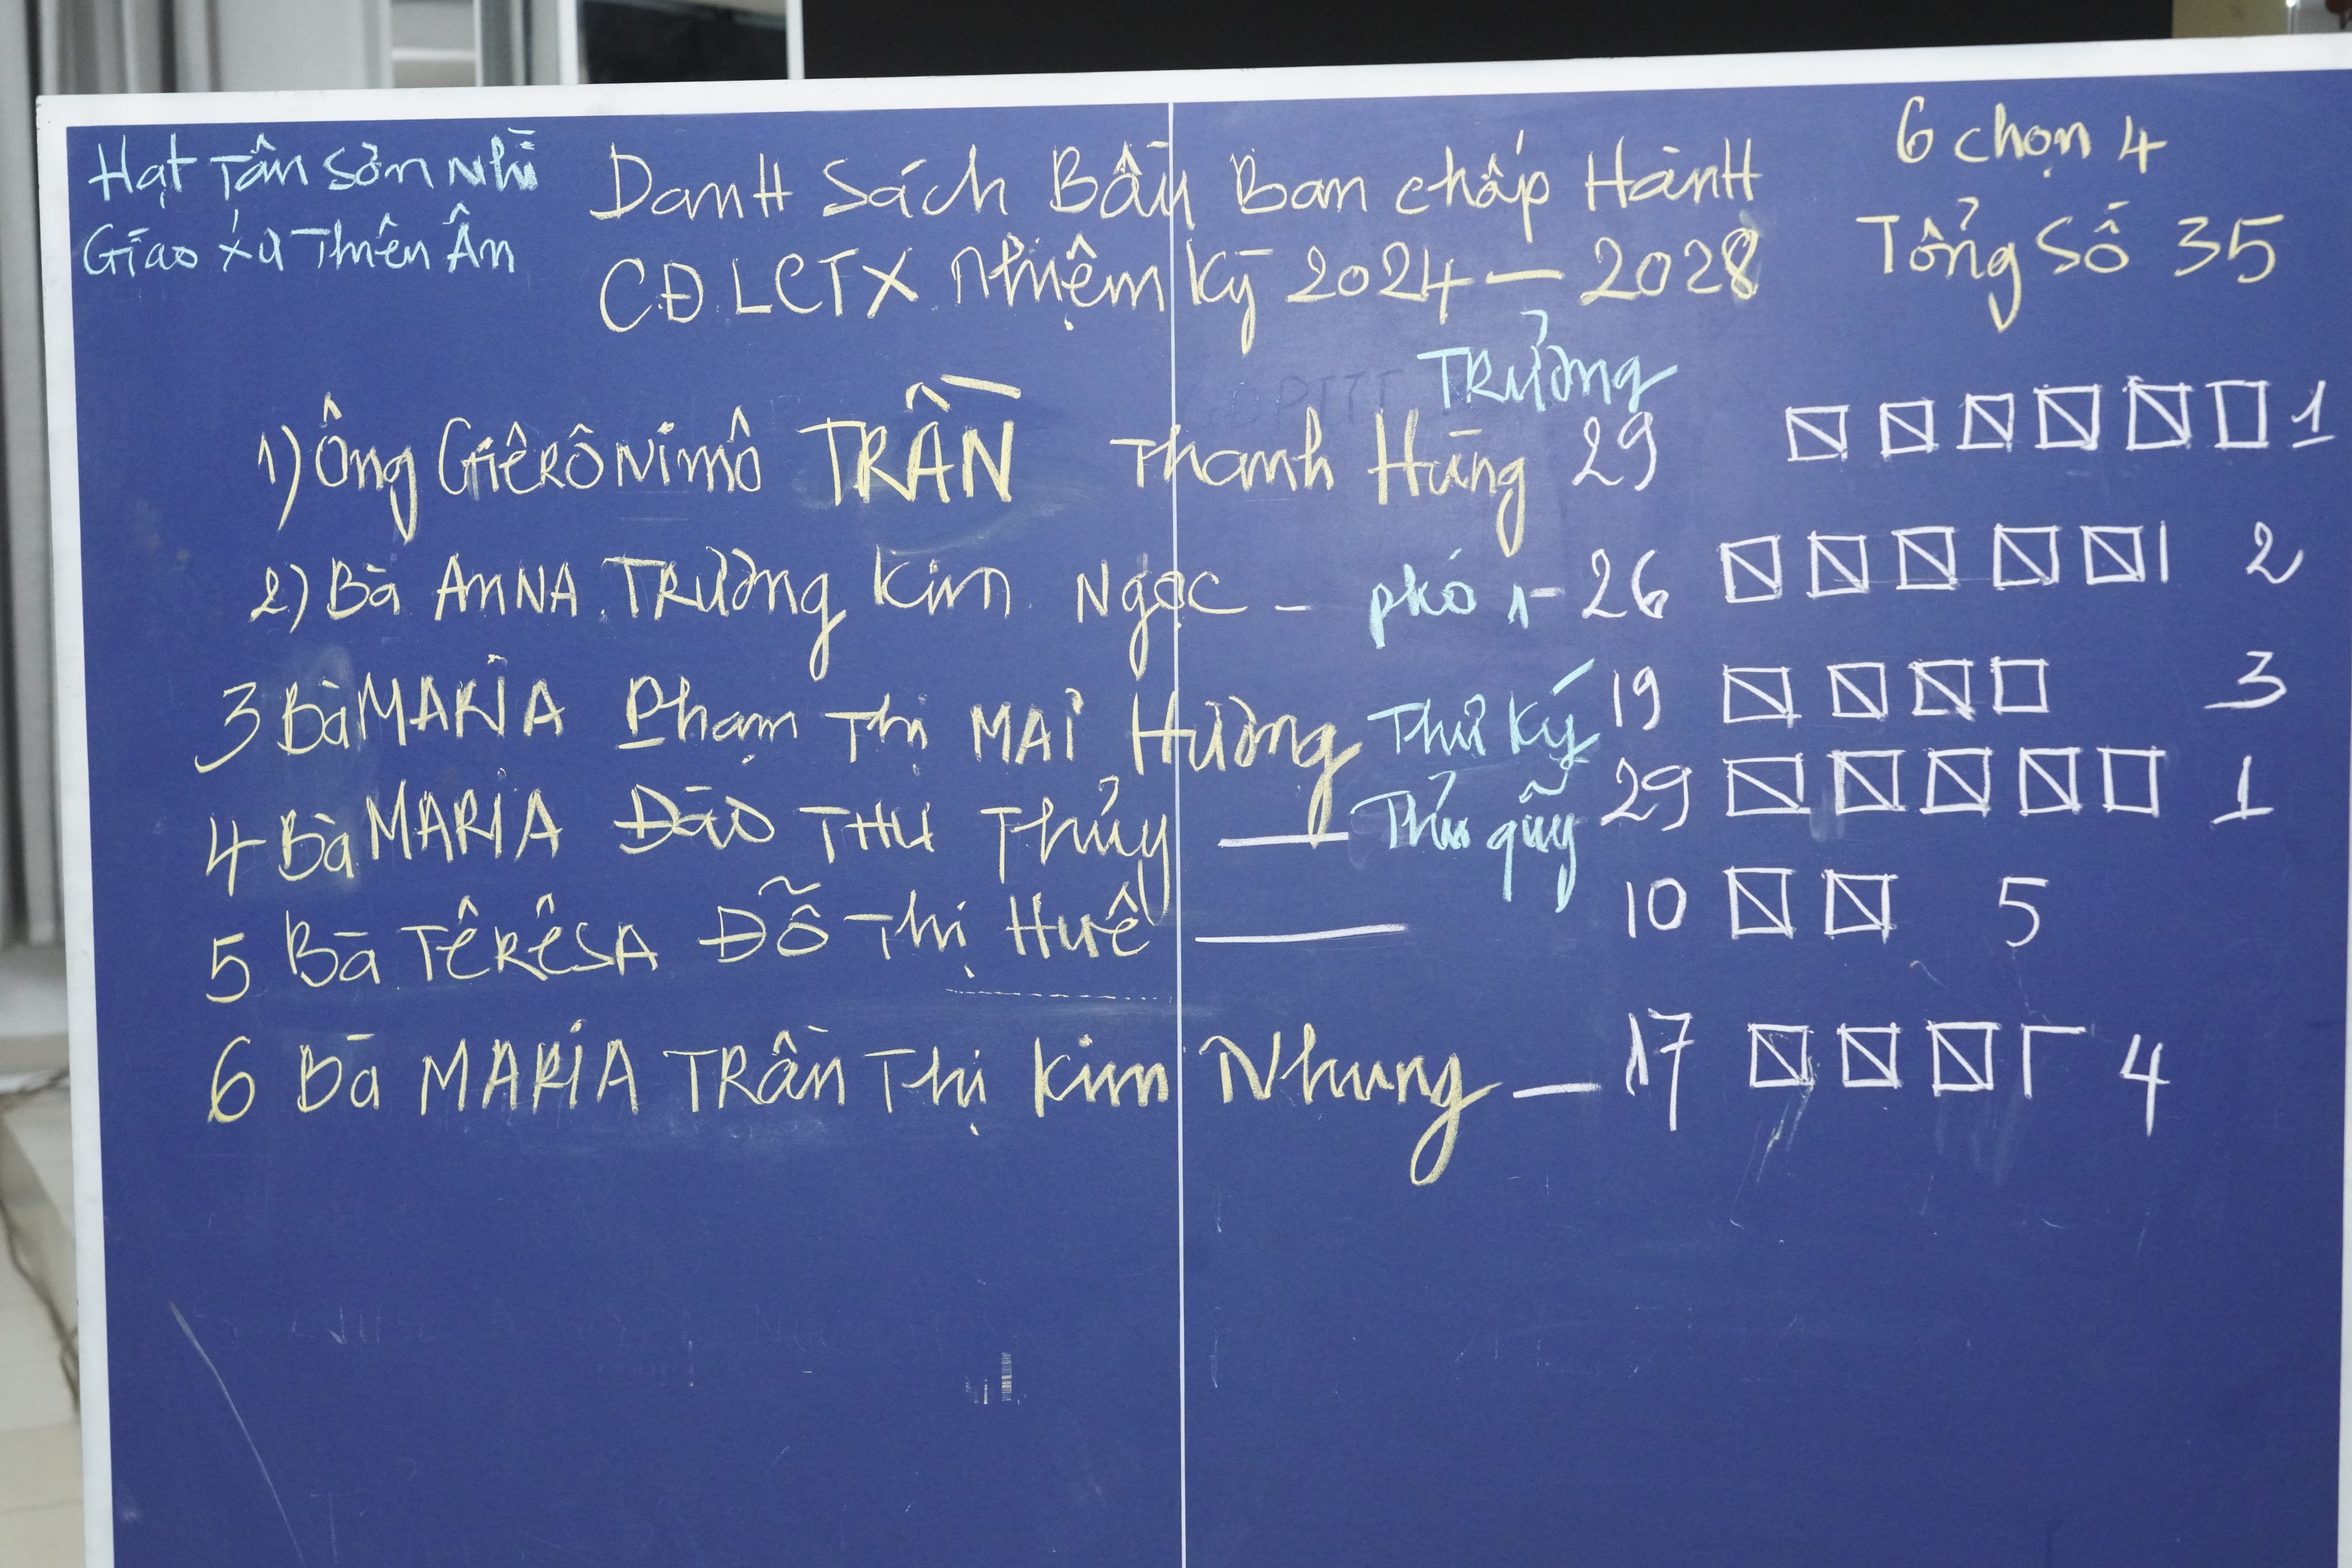 Hạt Tân Sơn Nhì
Giáo xứ Thiên Ân
DanH Sách Bầu Ban chấp HànH
CĐ LCTX Nhiệm Kỳ 2024 – 2028
6 chọn 4
Tổng Số 35
1) Ông GiÊRÔNimô TRẦN Thanh Hùng Trưởng 29 1
2) Bà AnNA Trương Kim Ngọc – phó 1 – 26 2
3 Bà MARIA Phạm Thị MAI Hương Thư Ký 19 3
4 Bà MARIA Đào THU Thủy — Thủ quỹ 29 1
5 Bà TÊRÊSA Đỗ Thị Huê — 10 5
6 Bà MARIA TRần Thị Kim Nhung — 17 4